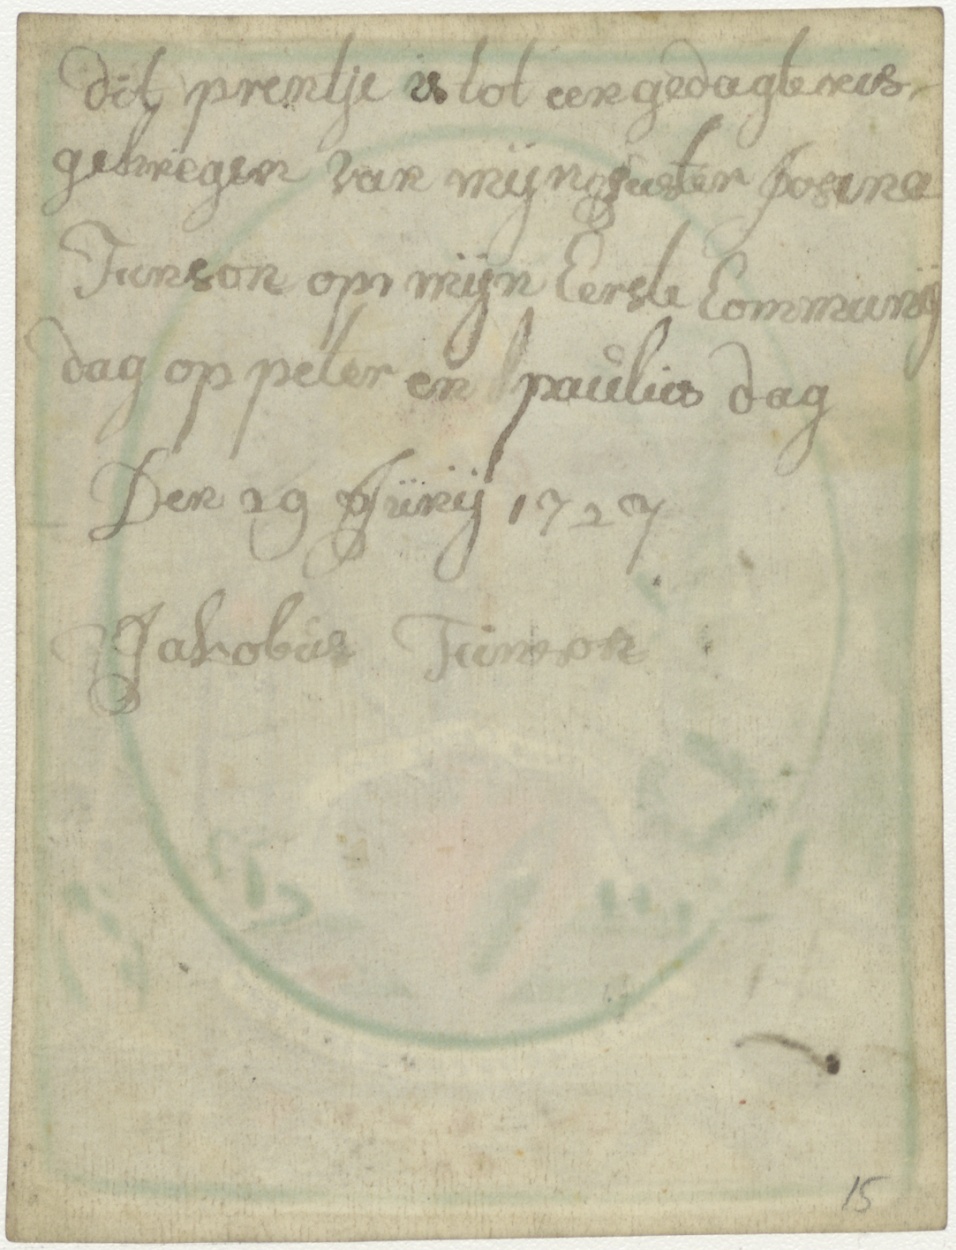 dit prentje is tot een gedagtenis
gekregen van mijn suster Josina
Janson op mijn Eerste Communij
dag op peter en paulus dag
Den 29 Junij 1727
Jakobus Janson
15